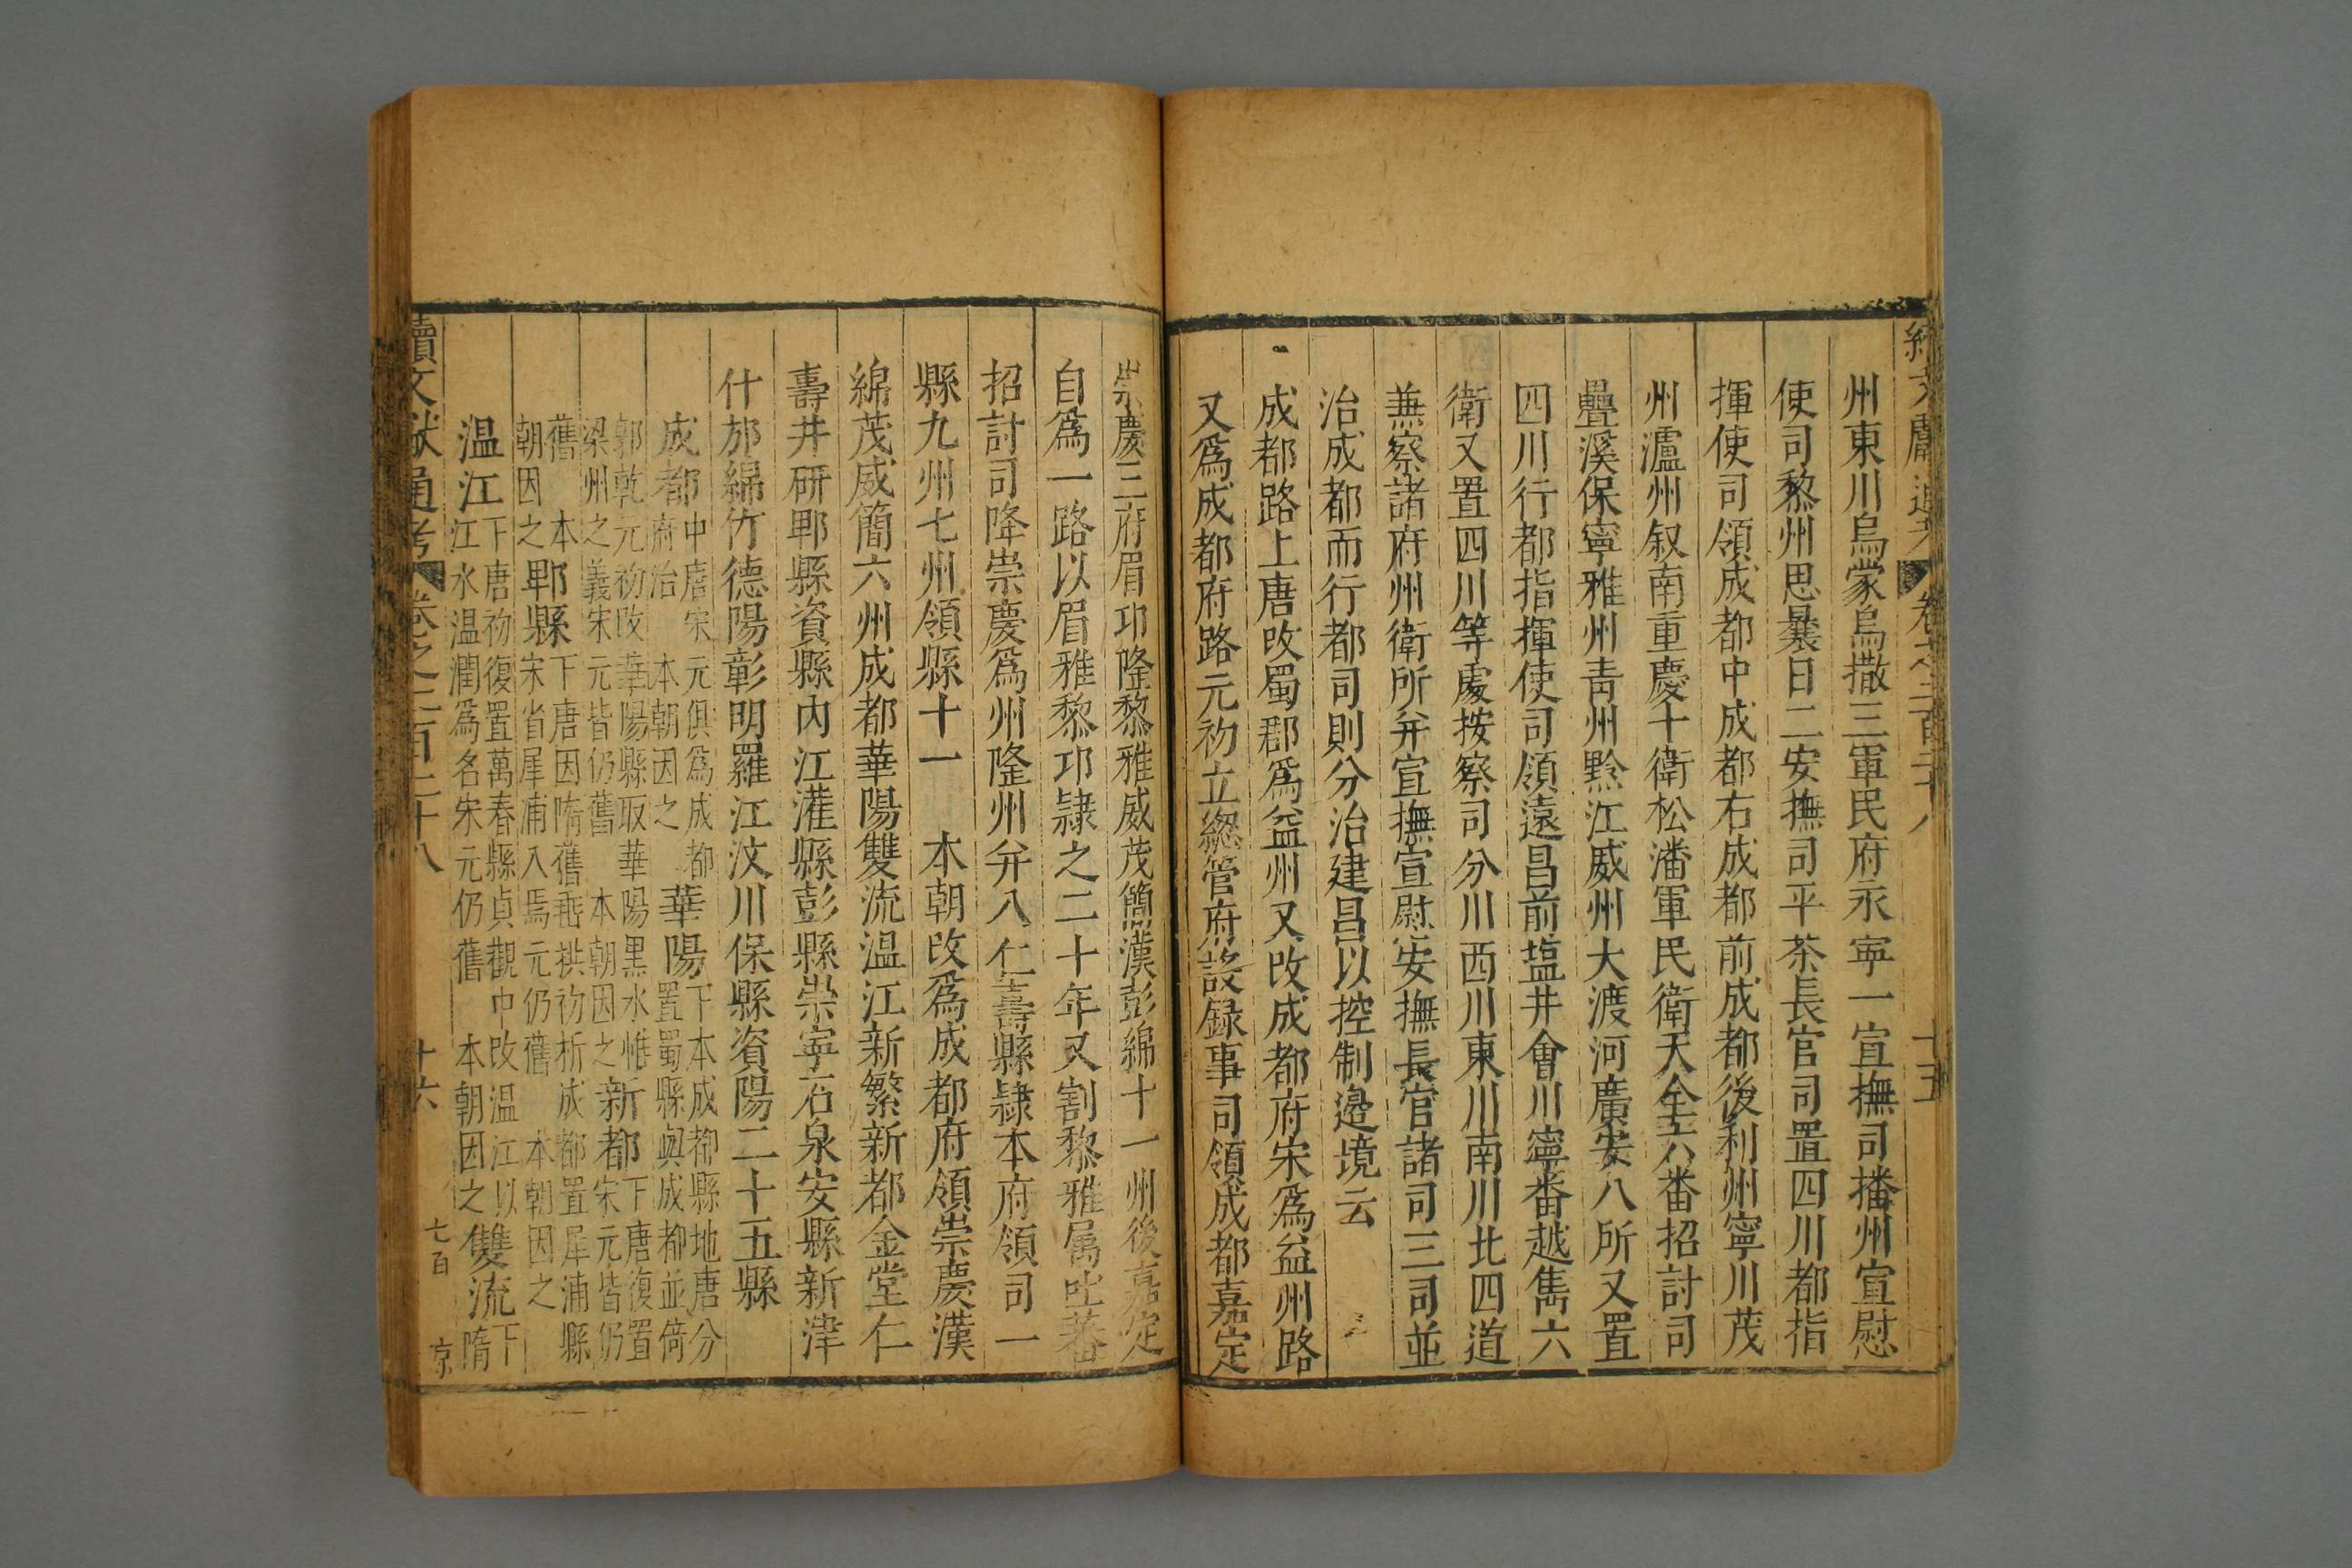 續文獻通考 卷之二百二十八 十五
州東川烏蒙烏撒三軍民府永寧一宣撫司播州宣慰
使司黎州思曩日二安撫司平茶長官司置四川都指
揮使司領成都中成都右成都前成都後利州寧川茂
州瀘州叙南重慶十衛松潘軍民衛天全六番招討司
疊溪保寧雅州青州黔江威州大渡河廣安八所又置
四川行都指揮使司領遠昌前塩井會川寧番越雋六
衛又置四川等處按察司分川西川東川南川北四道
兼察諸府州衛所并宣撫宣慰安撫長官諸司三司並
治成都而行都司則分治建昌以控制邉境云
成都路上唐改蜀郡爲益州又改成都府宋爲益州路
又爲成都府路元初立緫管府設録事司領成都嘉定
崇慶三府眉邛隆黎雅威茂簡漢彭綿十一州後嘉定
自爲一路以眉雅黎邛隸之二十年又割黎雅属吐蕃
招討司降崇慶爲州隆州并入仁壽縣隸本府領司一
縣九州七州領縣十一 本朝改爲成都府領崇慶漢
綿茂威簡六州成都華陽雙流温江新繁新都金堂仁
壽井研郫縣資縣內江灌縣彭縣崇寧石泉安縣新津
什邡綿竹德陽彰明羅江汶川保縣資陽二十五縣
成都中唐宋元俱爲成都
府治 本朝因之華陽下本成都縣地唐分
置蜀縣與成都並倚
郭乾元初改華陽縣取華陽黑水惟
梁州之義宋元皆仍舊 本朝因之新都下唐復置
宋元皆仍
舊 本
朝因之郫縣下唐因隋舊垂拱初析成都置犀浦縣
宋省犀浦入焉元仍舊 本朝因之
温江下唐初復置萬春縣貞觀中改温江以
江水温潤爲名宋元仍舊 本朝因之雙流下
隋
續文獻通考 卷之二百二十八 十六 七百 京